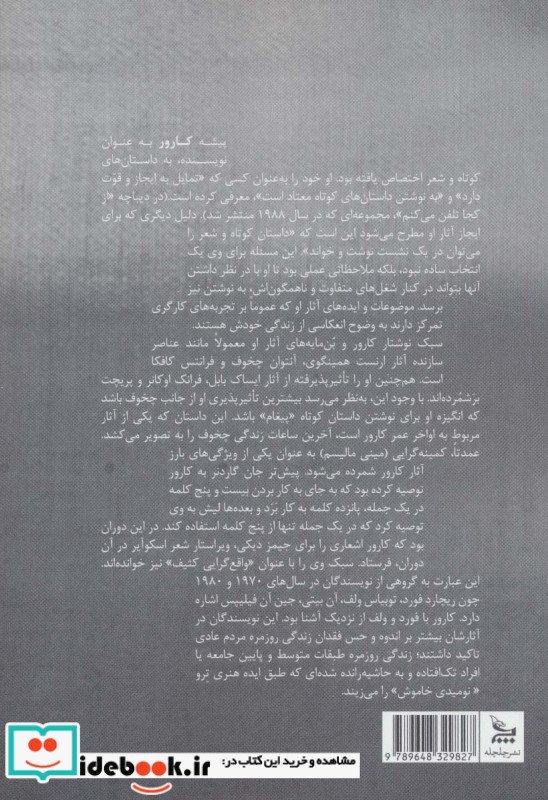 پیشه کارور به عنوان
نویسنده، به داستان‌های
کوتاه و شعر اختصاص یافته بود. او خود را به‌عنوان کسی که «تمایل به ایجاز و قوّت
دارد» و «به نوشتن داستان‌های کوتاه معتاد است»، معرفی کرده است.(در دیباچه «از
کجا تلفن می‌کنم»، مجموعه‌ای که در سال ۱۹۸۸ منتشر شد) دلیل دیگری که برای
ایجاز آثار او مطرح می‌شود این است که «داستان کوتاه و شعر را
می‌توان در یک نشست نوشت و خواند». این مسئله برای وی یک
انتخاب ساده نبود، بلکه ملاحظاتی عملی بود تا او با در نظر داشتن
آنها بتواند در کنار شغل‌های متفاوت و ناهمگون‌اش، به نوشتن نیز
برسد. موضوعات و ایده‌های آثار او که عموماً بر تجربه‌های کارگری
تمرکز دارند به وضوح انعکاسی از زندگی خودش هستند.
سبک نوشتار کارور و بُن‌مایه‌های آثار او معمولاً مانند عناصر
سازنده آثار ارنست همینگوی، آنتوان چخوف و فرانتس کافکا
است. هم‌چنین او را تأثیرپذیرفته از آثار ایساک بابل، فرانک اوکانر و پریچت
برشمُرده‌اند. با وجود این، به‌نظر می‌رسد بیشترین تأثیرپذیری او از جانب چخوف باشد
که انگیزه او برای نوشتن داستان کوتاه «پیغام» باشد. این داستان که یکی از آثار
مربوط به اواخر عمر کارور است، آخرین ساعات زندگی چخوف را به تصویر می‌کشد.
عمدتاً، کمینه‌گرایی (مینی مالیسم) به عنوان یکی از ویژگی‌های بارز
آثار کارور شمرده می‌شود. پیش‌تر جان گاردنر به کارور
توصیه کرده بود که به جای به کار بردن بیست و پنج کلمه
در یک جمله، پانزده کلمه به کار بَرَد و بعدها لیش به وی
توصیه کرد که در یک جمله تنها از پنج کلمه استفاده کند. در این دوران
بود که کارور اشعاری را برای جیمز دیکی، ویراستار شعر اسکوآیر در آن
دوران، فرستاد. سبک وی را با عنوان «واقع‌گرایی کثیف» نیز خوانده‌اند.
این عبارت به گروهی از نویسندگان در سال‌های ۱۹۷۰ و ۱۹۸۰
چون ریچارد فورد، توبیاس ولف، آن بیتی، جین آن فیلیپس اشاره
دارد. کارور با فورد و ولف از نزدیک آشنا بود. این نویسندگان در
آثارشان بیشتر بر اندوه و حس فقدان زندگی روزمره مردم عادی
تاکید داشتند؛ زندگی روزمره طبقات متوسط و پایین جامعه یا
افراد تک‌افتاده و به حاشیه‌رانده شده‌ای که طبق ایده هنری ثرو
«نومیدی خاموش» را می‌زیند.
نشر چلچله
9 789648 329827
مشاهده و خرید این کتاب در:
idebook.ir